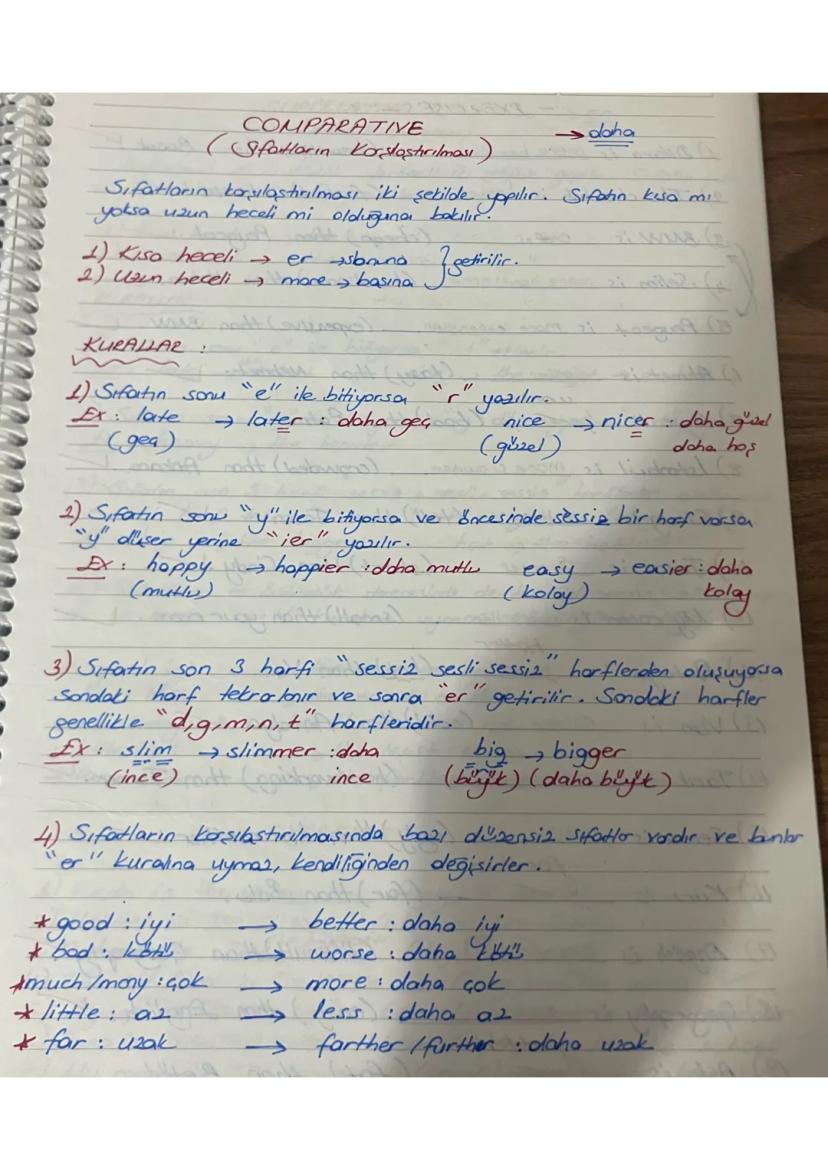 COMPARATIVE → daha
(Sıfatların Karşılaştırılması)
Sıfatların karşılaştırılması iki şekilde yapılır. Sıfatın kısa mı
yoksa uzun heceli mi olduğuna bakılır.
1) Kısa heceli → er → sonuna } getirilir.
2) Uzun heceli → more → başına
KURALLAR :
1) Sıfatın sonu "e" ile bitiyorsa "r" yazılır.
Ex : late → later : daha geç nice → nicer : daha güzel
(geç) (güzel) daha hoş
2) Sıfatın sonu "y" ile bitiyorsa ve öncesinde sessiz bir harf varsa
"y" düşer yerine "ier" yazılır.
Ex : happy → happier : daha mutlu easy → easier : daha
(mutlu) (kolay) kolay
3) Sıfatın son 3 harfi "sessiz sesli sessiz" harflerden oluşuyorsa
sondaki harf tekrarlanır ve sonra "er" getirilir. Sondaki harfler
genellikle "d,g,m,n,t" harfleridir.
Ex : slim → slimmer : daha big → bigger
(ince) ince (büyük) (daha büyük)
4) Sıfatların karşılaştırılmasında bazı düzensiz sıfatlar vardır ve bunlar
"er" kuralına uymaz, kendiliğinden değişirler.
* good : iyi → better : daha iyi
* bad : kötü → worse : daha kötü
* much/many : çok → more : daha çok
* little : az → less : daha az
* far : uzak → farther / further : daha uzak